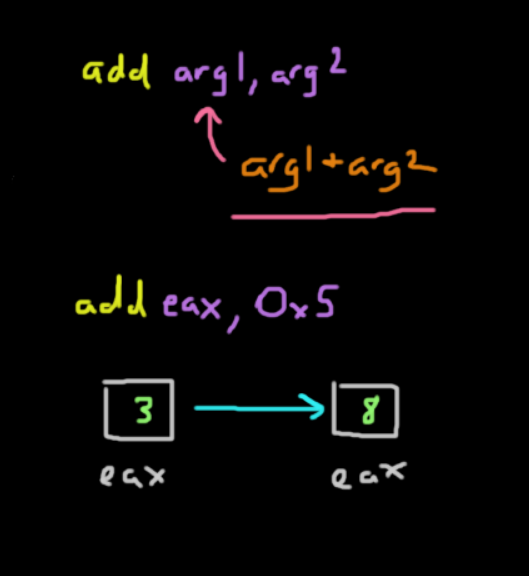 add arg1, arg2
arg1+arg2
add eax, 0x5
3 8
eax eax